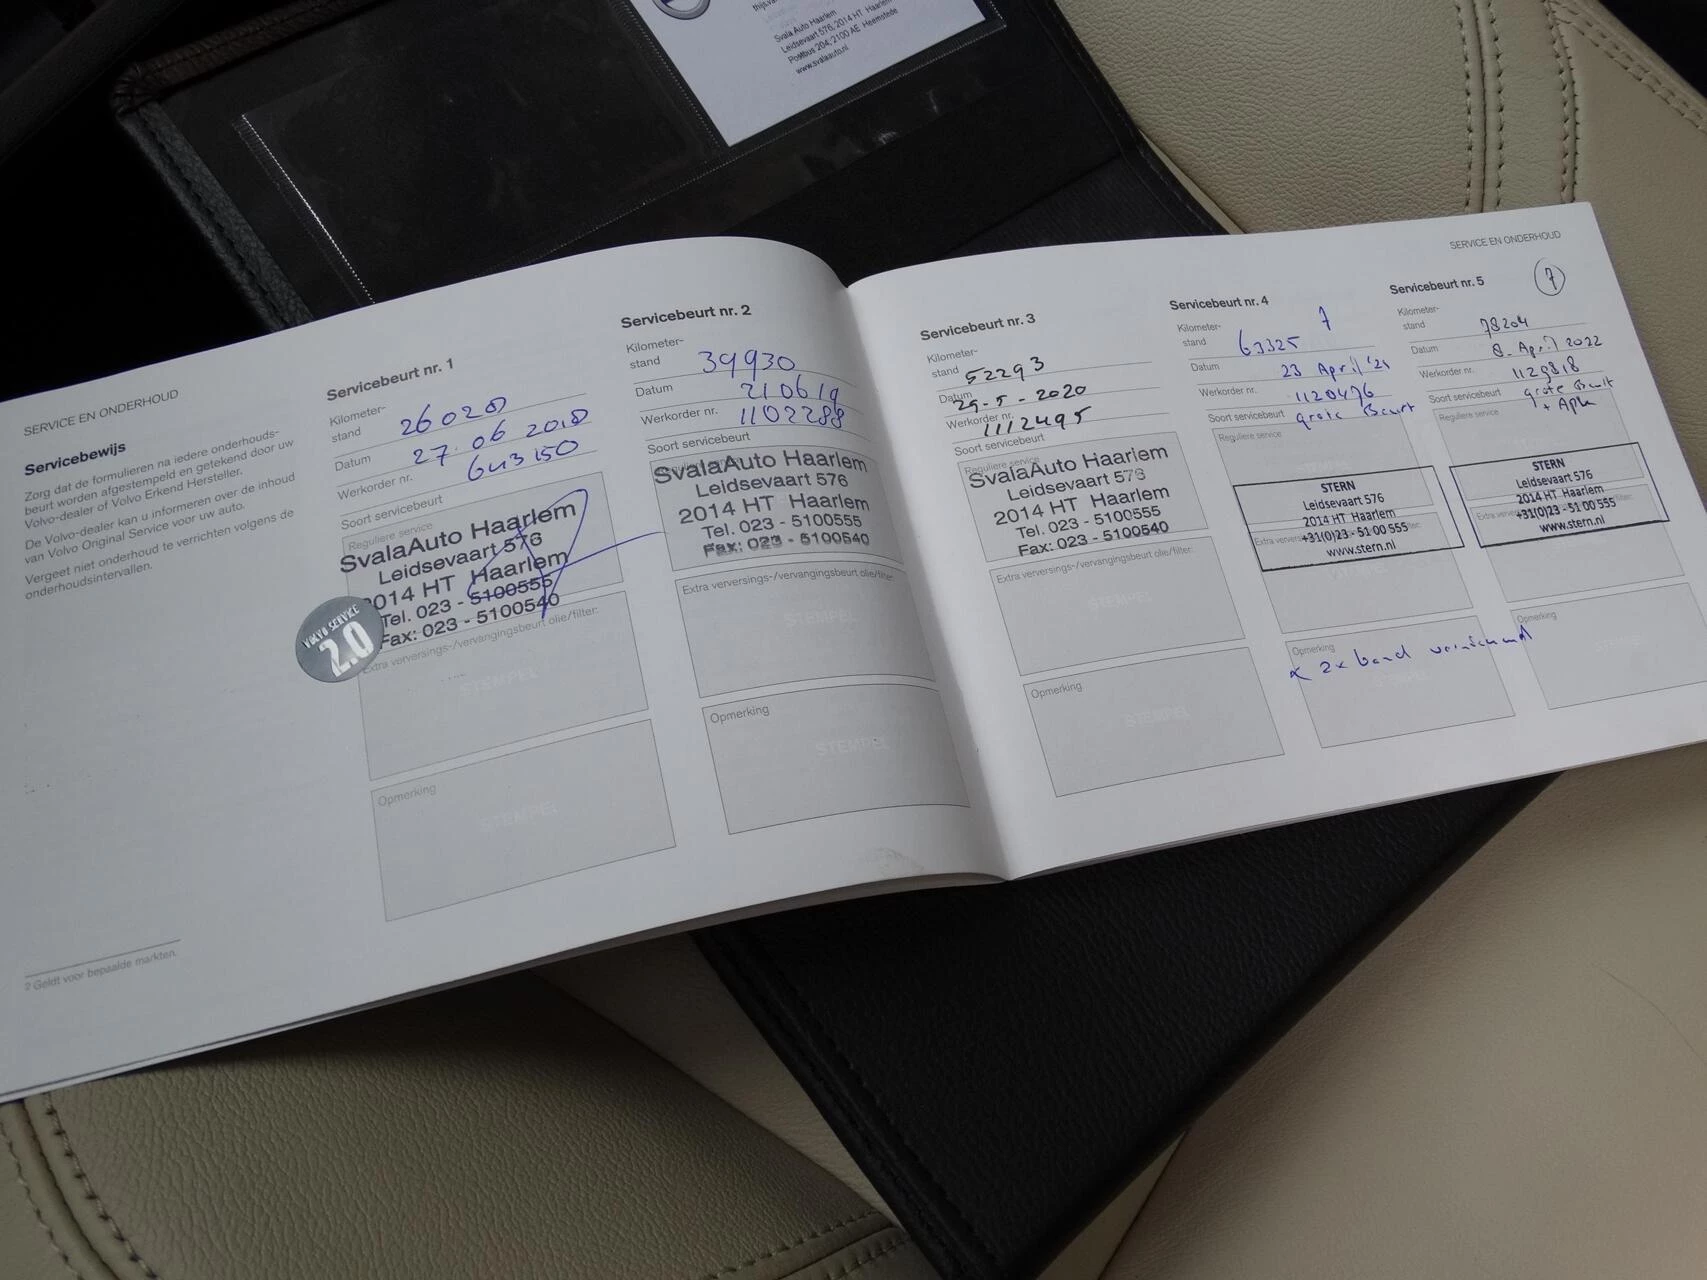 Svala Auto Haarlem
Leidsevaart 576, 2014 HT Haarlem
Postbus 204, 2100 AE Heemstede
www.svalaauto.nl
SERVICE EN ONDERHOUD
Servicebewijs
Zorg dat de formulieren na iedere onderhouds-
beurt worden afgestempeld en getekend door uw
Volvo-dealer of Volvo Erkend Hersteller.
De Volvo-dealer kan u informeren over de inhoud
van Volvo Original Service voor uw auto.
Vergeet niet onderhoud te verrichten volgens de
onderhoudsintervallen.
2 Geldt voor bepaalde markten.
Servicebeurt nr. 1
Kilometer-
stand 26020
Datum 27.06 2018
Werkorder nr. 643150
Soort servicebeurt
Reguliere service
SvalaAuto Haarlem
Leidsevaart 576
2014 HT Haarlem
Tel. 023 - 5100555
Fax: 023 - 5100540
VOLVO SERVICE
2.0
Extra verversings-/vervangingsbeurt olie/filter:
STEMPEL
Opmerking
STEMPEL
Servicebeurt nr. 2
Kilometer-
stand 39930
Datum 210619
Werkorder nr. 1102288
Soort servicebeurt
Reguliere service
SvalaAuto Haarlem
Leidsevaart 576
2014 HT Haarlem
Tel. 023 - 5100555
Fax: 023 - 5100540
Extra verversings-/vervangingsbeurt olie/filter:
STEMPEL
Opmerking
STEMPEL
Servicebeurt nr. 3
Kilometer-
stand 52293
Datum 29-5-2020
Werkorder nr. 1112495
Soort servicebeurt
Reguliere service
SvalaAuto Haarlem
Leidsevaart 576
2014 HT Haarlem
Tel. 023 - 5100555
Fax: 023 - 5100540
Extra verversings-/vervangingsbeurt olie/filter:
STEMPEL
Opmerking
STEMPEL
SERVICE EN ONDERHOUD
Servicebeurt nr. 4
Kilometer-
stand 63325 7
Datum 23 April '21
Werkorder nr. 1120476
Soort servicebeurt grote Beurt
Reguliere service
STERN
Leidsevaart 576
2014 HT Haarlem
+31(0)23 - 51 00 555
www.stern.nl
STEMPEL
Opmerking
2x band
Servicebeurt nr. 5 7
Kilometer-
stand 78204
Datum 8. April 2022
Werkorder nr. 1129818
Soort servicebeurt grote Beurt
+ Apk
Reguliere service
STERN
Leidsevaart 576
2014 HT Haarlem
+31(0)23 - 51 00 555
www.stern.nl
Opmerking
STEMPEL